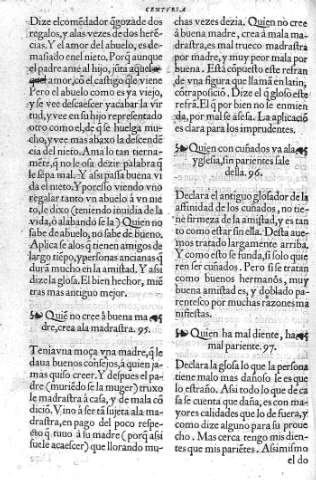 CENTVRIA
Dize el comẽdador q̃ gozade dos
regalos, y alas vezes de dos herẽ-
cias. Y el amor del abuelo, es de-
masiado enel nieto. Porq̃ aunque
el padre ame al hijo, jũta
amor, cõ el castigo q̃ le viene
Pero el abuelo como es ya viejo,
y se vee descaescer ya cabar la vir
tud, y vee en su hijo representado
otro como el, de q̃ se huelga mu-
cho, y vee mas abaxo la descendẽ
cia del nieto. Ama lo tan tierna-
mẽte, q̃ no le osa dezir palabra q̃
le sepa mal. Y assi passa buena vi
da el nieto. Y por esso viendo vno
regalar tanto vn abuelo à vn nie
to, le dixo (teniendo inuidia de la
vida, o alabando se la) Quien no
sabe de abuelo, no sabe de bueno.
Aplica se a los q̃ tienen amigos de
largo tiẽpo, y personas ancianas q̃
durã mucho en la amistad. Y assi
dize la glosa. El bien hechor, miẽ
tras mas antiguo mejor.
Quiẽ no cree à buena ma
dre, crea ala madrastra. 95.
Tenia vna moça vna madre, q̃ le
daua buenos consejos, à quien ja-
mas quiso creer. Y despues el pa-
dre (muriẽdo se la muger) truxo
le madrastra à casa, y de mala cõ
diciõ. Vino à ser tã sujeta ala ma-
drastra, en pago del poco respe-
cto q̃ tuuo à su madre (porq̃ assi
suele acaescer) que llorando mu-
chas vezes dezia. Quien no cree
à buena madre, crea à mala ma-
drastra, es mal trueco madrastra
por madre, y muy peor mala por
buena. Està cõpuesto este refran
de vna figura que llamã en latin,
cõtraposiciõ. Dize el q̃ gloso este
refrã. El q̃ por bien no le enmien
da, por mal se assesa. La aplicaciõ
es clara para los imprudentes.
Quien con cuñados va ala
yglesia, sin parientes sale
della. 96.
Declara el antiguo glosador de la
affinidad de los cuñados, no tie-
ne firmeza de la amistad, y es tan
to como estar sin ella. Desta aue-
mos tratado largamente arriba.
Y como esto se funda, si solo que
ren ser cuñados. Pero si se tratan
como buenos hermanos, muy
buena amistad es, y doblado pa-
rentesco por muchas razones ma
nifiestas.
Quien ha mal diente, ha
mal pariente. 97.
Declara la glosa lo que la persona
tiene malo mas dañoso le es que
lo estraño. Assi todo lo que de ca
sa se cuenta que daña, es con ma-
yores calidades que lo de fuera, y
como dize alguno para su proue
cho. Mas cerca tengo mis dien-
tes que mis pariẽtes. Assimismo
el do